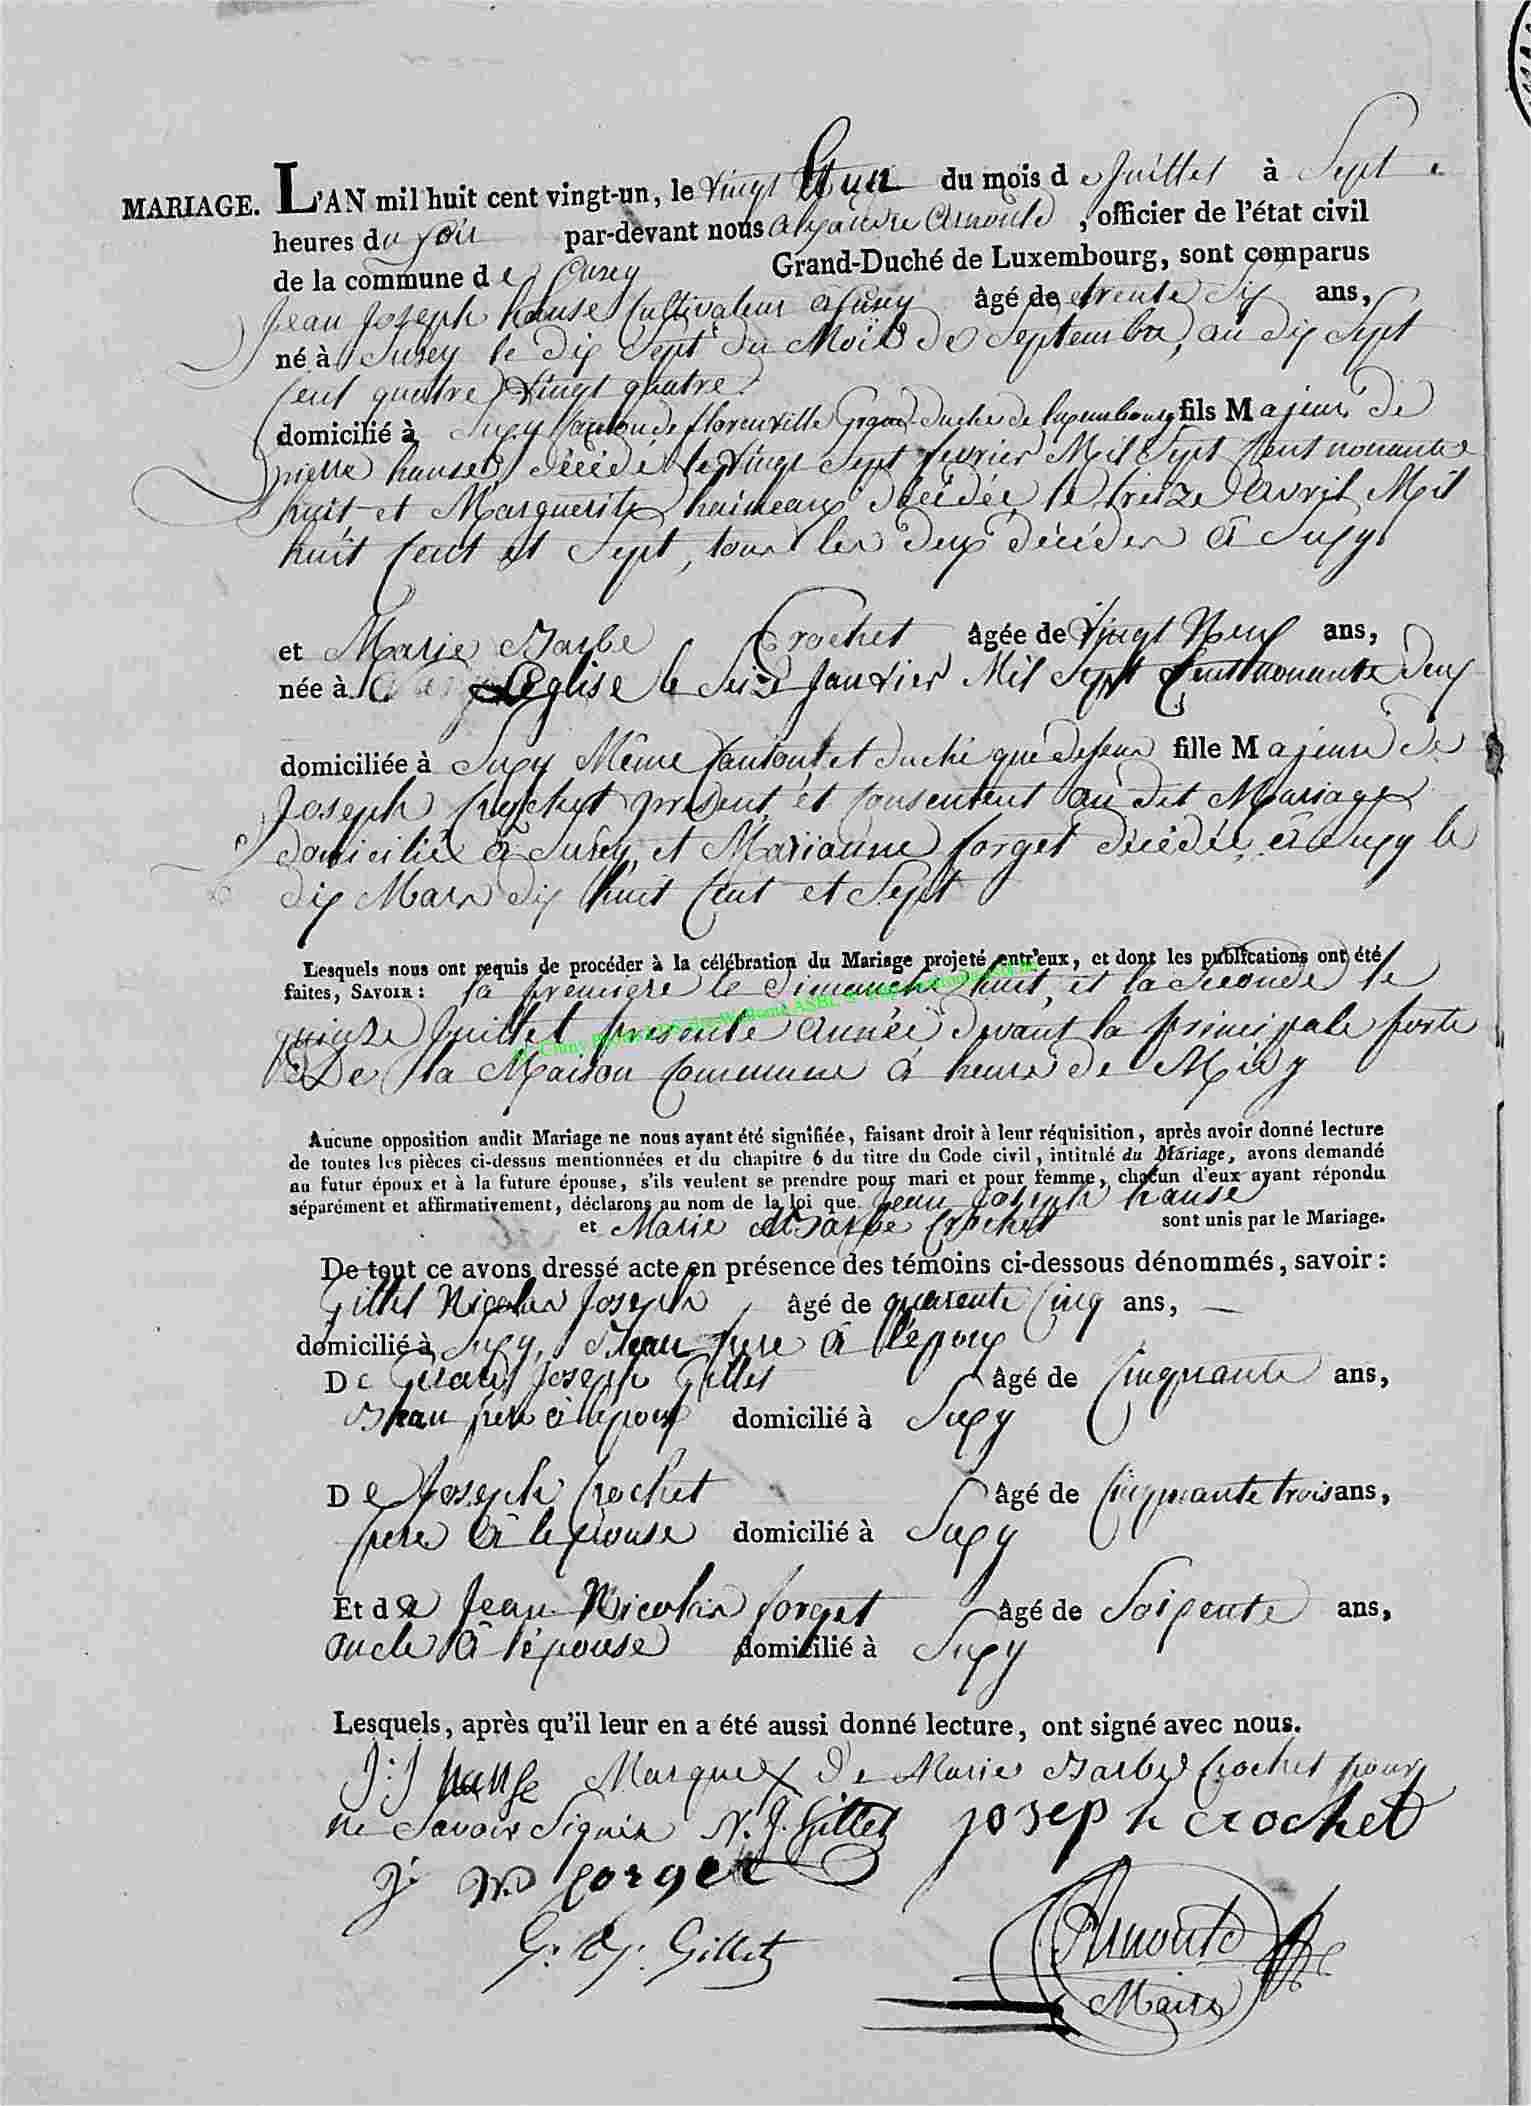 MARIAGE. L'AN mil huit cent vingt-un, le vingt Et un du mois de Juillet à Sept
heures du soir par-devant nous alexandre Arnould, officier de l'état civil
de la commune de Cugny Grand-Duché de Luxembourg, sont comparus
Jean Joseph hanse Cultivateur à Suxy âgé de trente Six ans,
né à Suxy le dix Sept du Mois de Septembre, an dix Sept
Cent quatre Vingt quatre
domicilié à Suxy Canton de florenville Grand-duché de luxembourg fils Majeur De
pierre hanse décédé le Vingt Sept fevrier Mil Sept Cent nonante
huit et Marguerite haineaux décédée le treize Avril Mil
huit Cent et Sept, tous les deux décédés à Suxy
et Marie Barbe Crochet âgée de Vingt Neuf ans,
née à Eglise le Seize Janvier Mil Sept Cent nonante deux
domiciliée à Suxy Même Canton et duché que dessus fille Majeure De
Joseph Crochet présent et Consentent au dit Mariage
domicilié à Suxy et Marianne forget décédée à Suxy le
dix Mars dix huit Cent et Sept
Lesquels nous ont requis de procéder à la célébration du Mariage projeté entr'eux, et dont les publications ont été
faites, SAVOIR : la premiere le Dimanche huit, et la seconde le
quinze Juillet presente année devant la principale porte
De la Maison Commune à heure de Midy
Aucune opposition audit Mariage ne nous ayant été signifiée, faisant droit à leur réquisition, après avoir donné lecture
de toutes les pièces ci-dessus mentionnées et du chapitre 6 du titre du Code civil, intitulé du Mariage, avons demandé
au futur époux et à la future épouse, s'ils veulent se prendre pour mari et pour femme, chacun d'eux ayant répondu
séparément et affirmativement, déclarons au nom de la loi que Jean Joseph hanse
et Marie Barbe Crochet sont unis par le Mariage.
De tout ce avons dressé acte en présence des témoins ci-dessous dénommés, savoir :
Gillet Nicolas Joseph âgé de quarente Cinq ans,
domicilié à Suxy, Beau frere à l'époux
De Gerard Joseph Gillet âgé de Cinquante ans,
Beau frere à l'époux domicilié à Suxy
De Joseph Crochet âgé de Cinquante trois ans,
pere à l'épouse domicilié à Suxy
Et de Jean Nicolas forget âgé de Soixente ans,
oncle à l'épouse domicilié à Suxy
Lesquels, après qu'il leur en a été aussi donné lecture, ont signé avec nous.
J: J hanse Marque X De Marie Barbe Crochet pour
ne Savoir Signer N. J. Gillet joseph crochet
J: N. forget
G. J. Gillet
Arnould
Maire